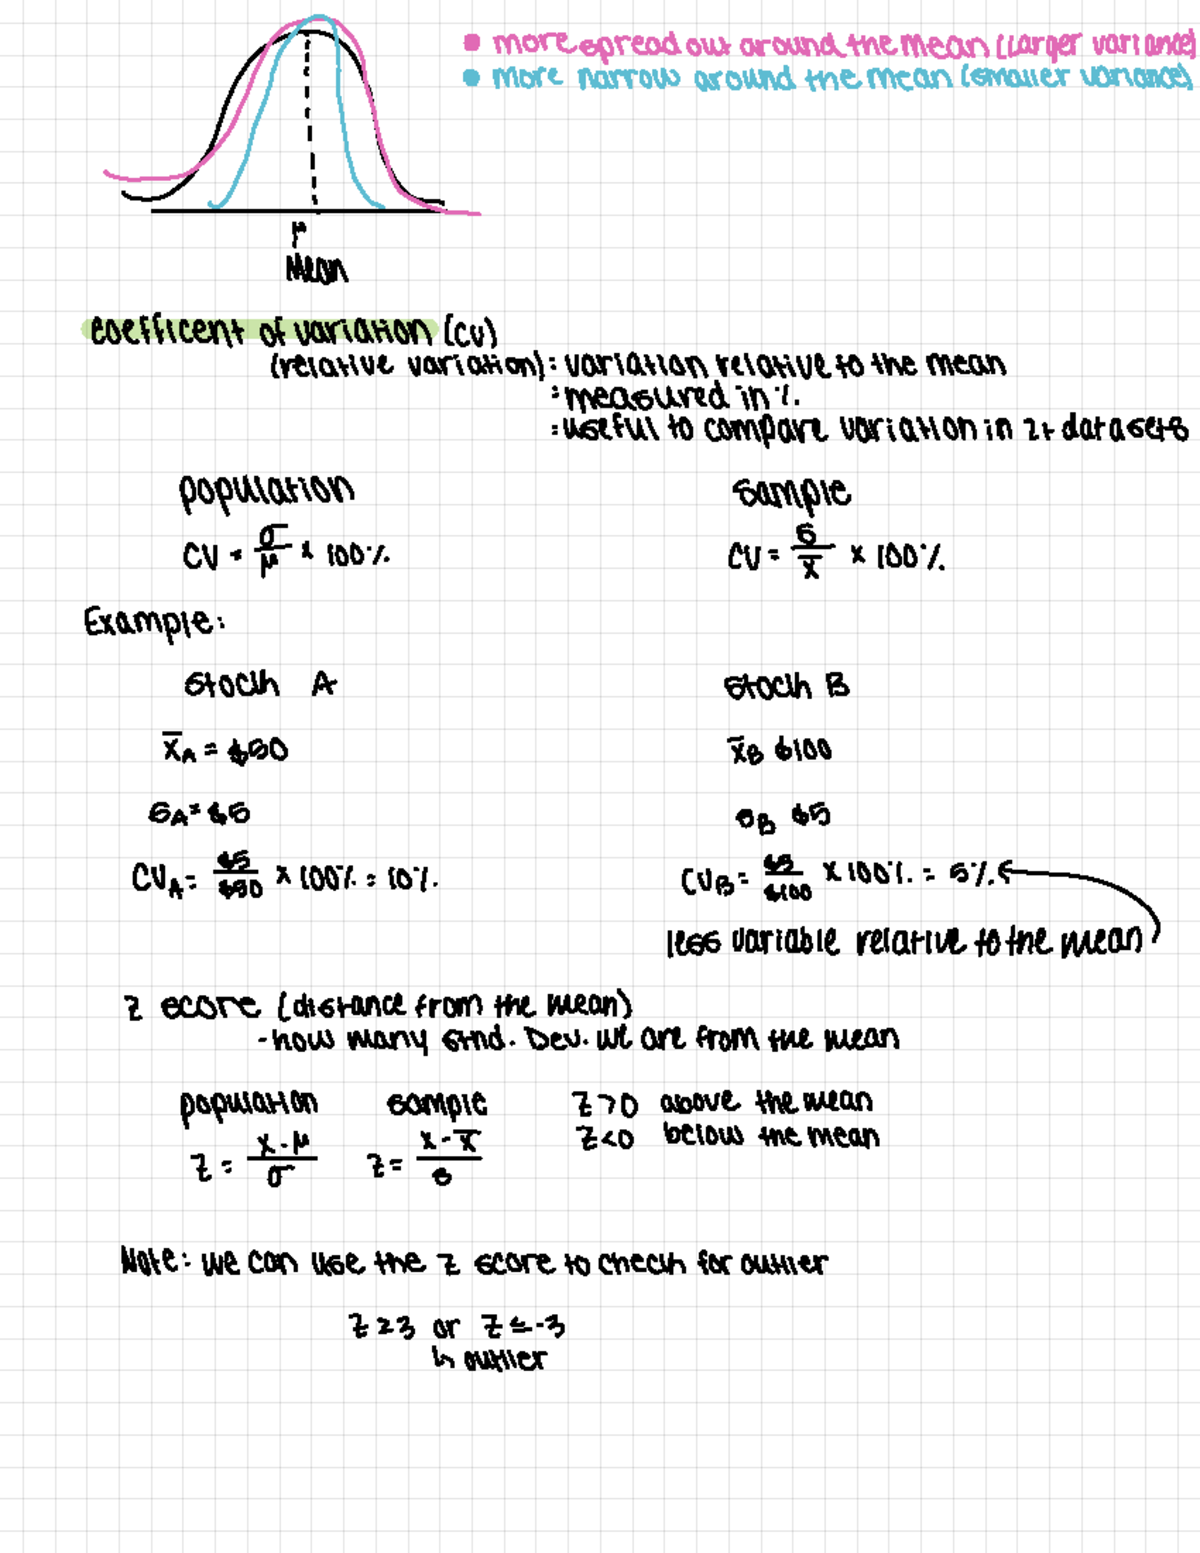 • more spread out around the mean (Larger variance)
• more narrow around the mean (smaller variance)
μ
Mean
coefficent of variation (CV)
(relative variation): variation relative to the mean
: measured in %.
: useful to compare variation in 2+ datasets
population sample
CV = σ/μ x 100% CV = s/x̄ x 100%
Example:
Stock A Stock B
x̄A = $50 x̄B $100
sA = $5 sB $5
CVA = $5/$50 x 100% = 10%. CVB = $5/$100 x 100%. = 5%.
less variable relative to the mean
Z score (distance from the mean)
- how many stnd. Dev. we are from the mean
population sample Z>0 above the mean
Z = x-μ/σ Z = x-x̄/s Z<0 below the mean
Note: we can use the Z score to check for outlier
Z ≥3 or Z ≤-3
↳ outlier